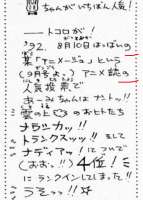 ちゃんがいちばん人気!
——トコロが!
'92. 8月10日はつばいの
某「アニメージュ」という
(9月号よ。)アニメ誌の
人気投票で
あーみちゃんはナント!!
雲の上の おかたたち
ナウシカッ!!
トランクスッッ!! そして
ナディアッ! につづいて
(おおっ!!) 4位!に
にランクインしてしまた!!
うそっっ!!☆